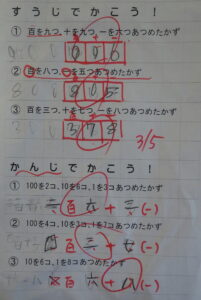 すうじでかこう!
① 百を九つ、十を九つ、一を六つあつめたかず
996
② 百を八つ、一を五つあつめたかず
805
③ 百を三つ、十を七つ、一を八つあつめたかず
378
3/5
かんじでかこう!
① 100を2コ、10を6コ、1を3コあつめたかず
百 六 十 三 (一)
② 100を4コ、10を3コ、1を7コあつめたかず
百 三 十 七 (一)
③ 10を6コ、1を8コあつめたかず
百 六 十 八 (一)